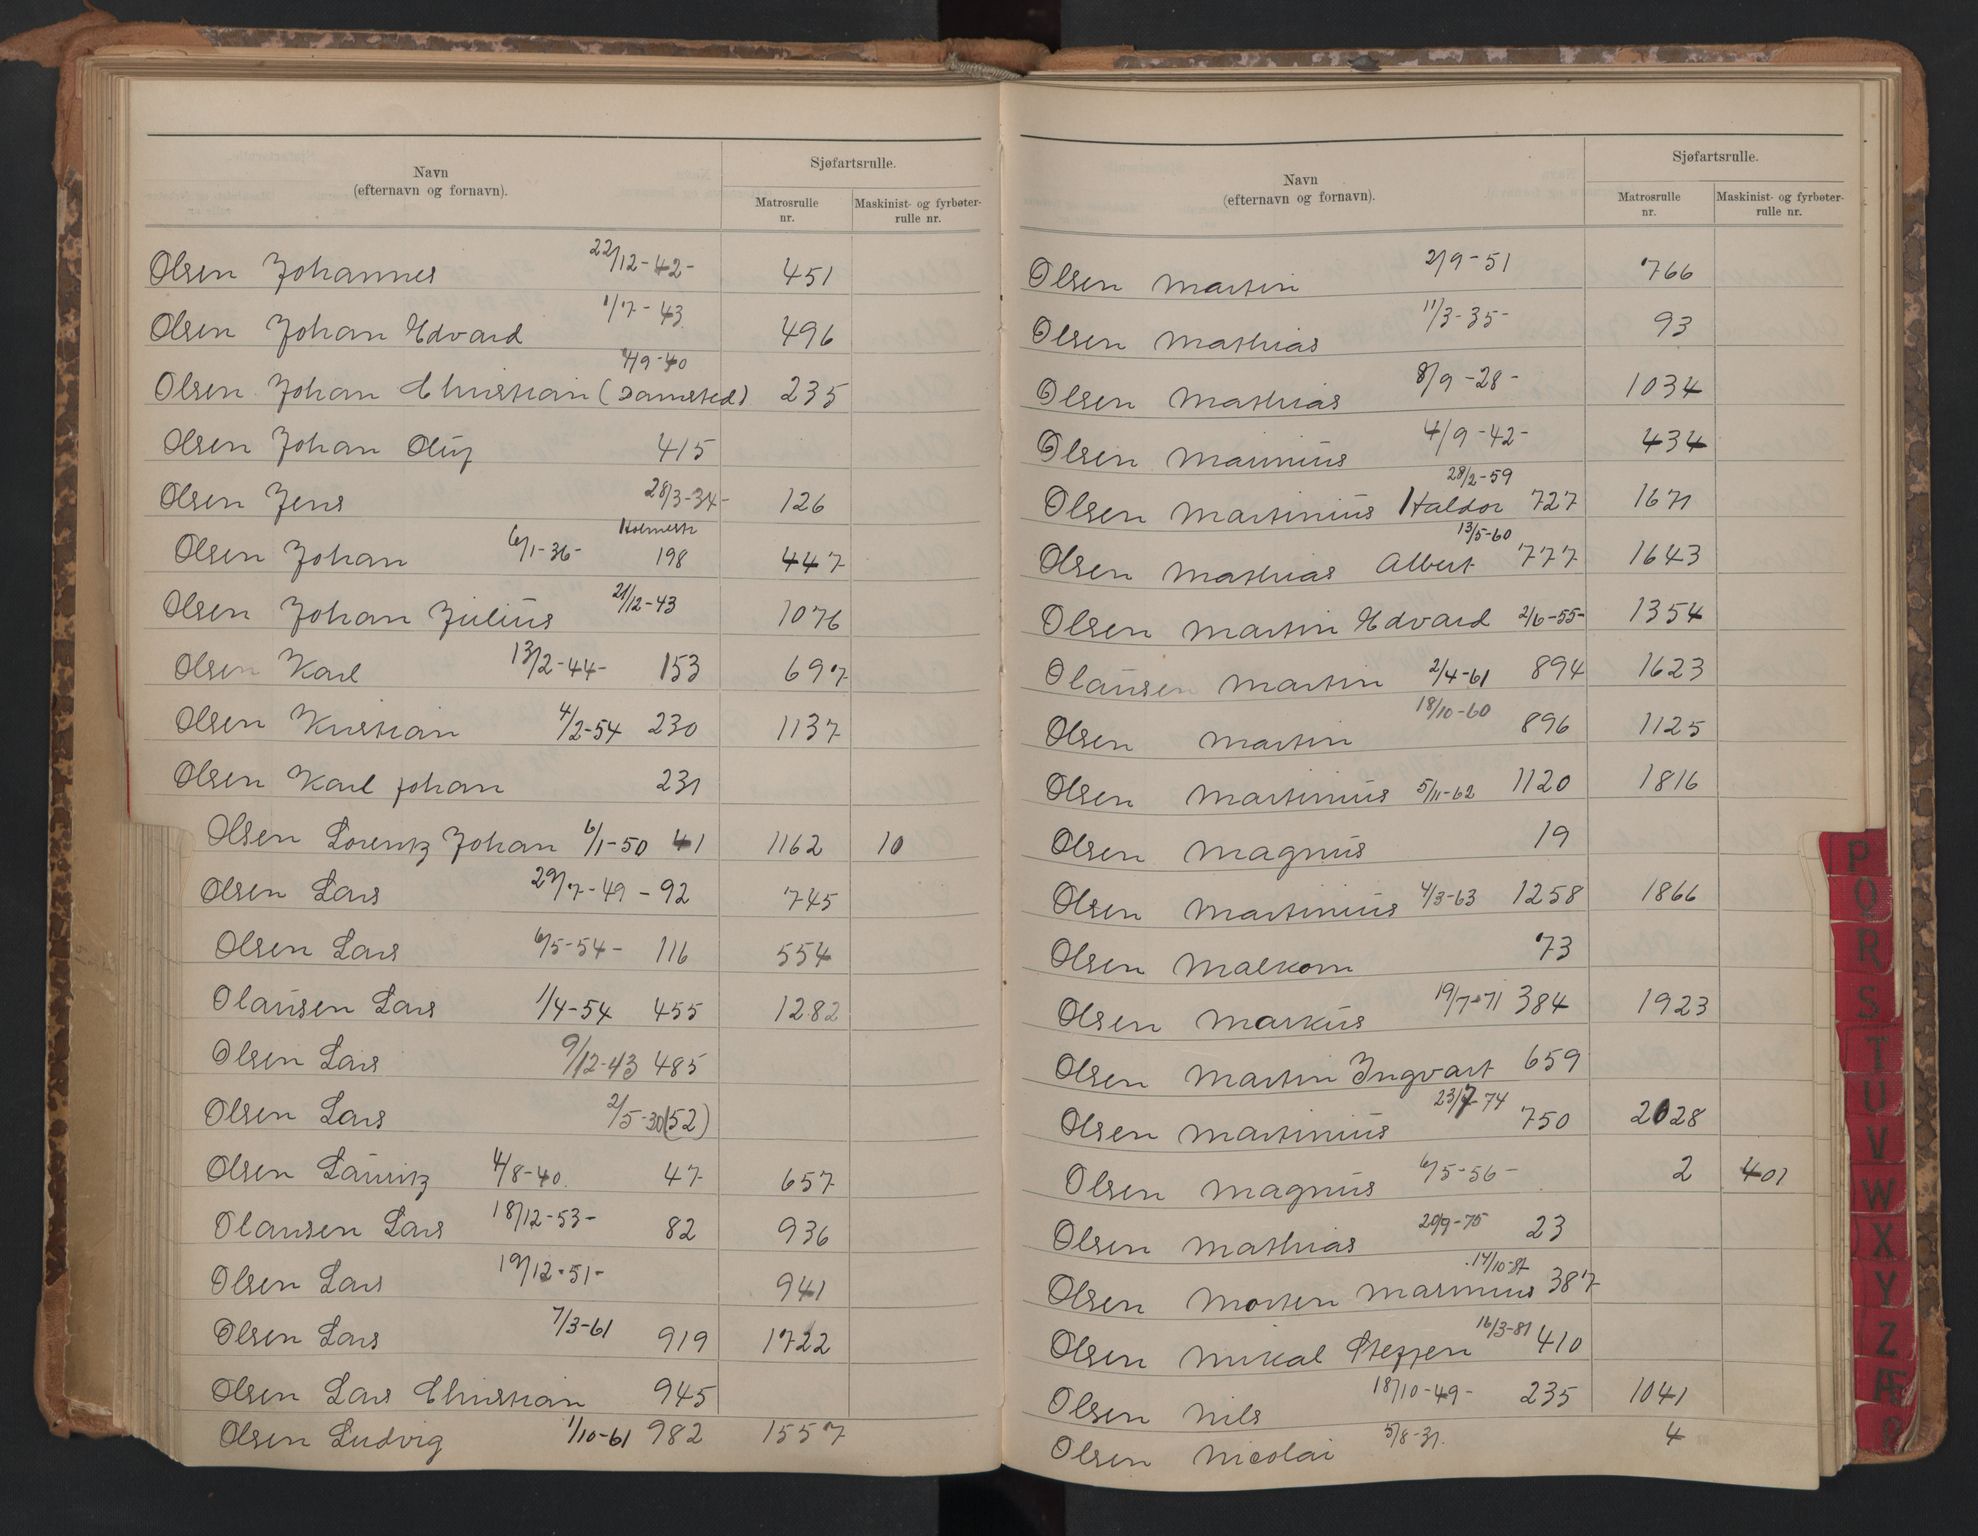 Navn
(efternavn og fornavn).
Sjøfartsrulle.
Matrosrulle nr.
Maskinist- og fyrbøter-rulle nr.
Olsen Johannes 22/12-42- 451
Olsen Johan Edvard 1/7-43 496
Olsen Johan Christian (Damsted) 4/9-40 235
Olsen Johan Oluf 415
Olsen Jens 28/3-34- 126
Olsen Johan 6/1-36- Holmestr 198 447
Olsen Johan Julius 21/12-43 1076
Olsen Karl 13/2-44- 153 697
Olsen Kristian 4/2-54 230 1137
Olsen Karl Johan 231
Olsen Lorentz Johan 6/1-50 41 1162 10
Olsen Lars 29/7-49-92 745
Olsen Lars 6/5-54- 116 554
Olausen Lars 1/4-54 455 1282
Olsen Lars 9/12-43 485
Olsen Lars 2/5-30 (52)
Olsen Lauritz 4/8-40. 47 657
Olausen Lars 18/12-53- 82 936
Olsen Lars 19/12-51- 941
Olsen Lars 7/3-61 919 1722
Olsen Lars Christian 945
Olsen Ludvig 1/10-61 982 1557
Navn
(efternavn og fornavn).
Sjøfartsrulle.
Matrosrulle nr.
Maskinist- og fyrbøter-rulle nr.
Olsen Martin 2/9-51 766
Olsen Mathias 11/3-35- 93
Olsen Mathias 8/9-28- 1034
Olsen Marinius 4/9-42- 434
Olsen Martinius Haldor 28/2-59 727 1671
Olsen Mathias Albert 13/5-60 777 1643
Olsen Martin Edvard 2/6-55- 1354
Olausen Martin 2/4-61 894 1623
Olsen Martin 18/10-60 896 1125
Olsen Martinius 5/11-62 1120 1816
Olsen Magnus 19
Olsen Martinius 4/3-63 1258 1866
Olsen Malkom 73
Olsen Markus 19/7-71 384 1923
Olsen Martin Ingvart 659
Olsen Martinius 23/7-74 750 2028
Olsen Magnus 6/5-56- 2 401
Olsen Mathias 20/9-75 23
Olsen Morten Marinius 14/10-87 387
Olsen Mikal Steffen 16/3-81 410
Olsen Nils 18/10-49- 235 1041
Olsen Nicolai 5/8-31. 4
P
Q
R
S
T
U
V
W
X
Y
Z
Æ
Ø